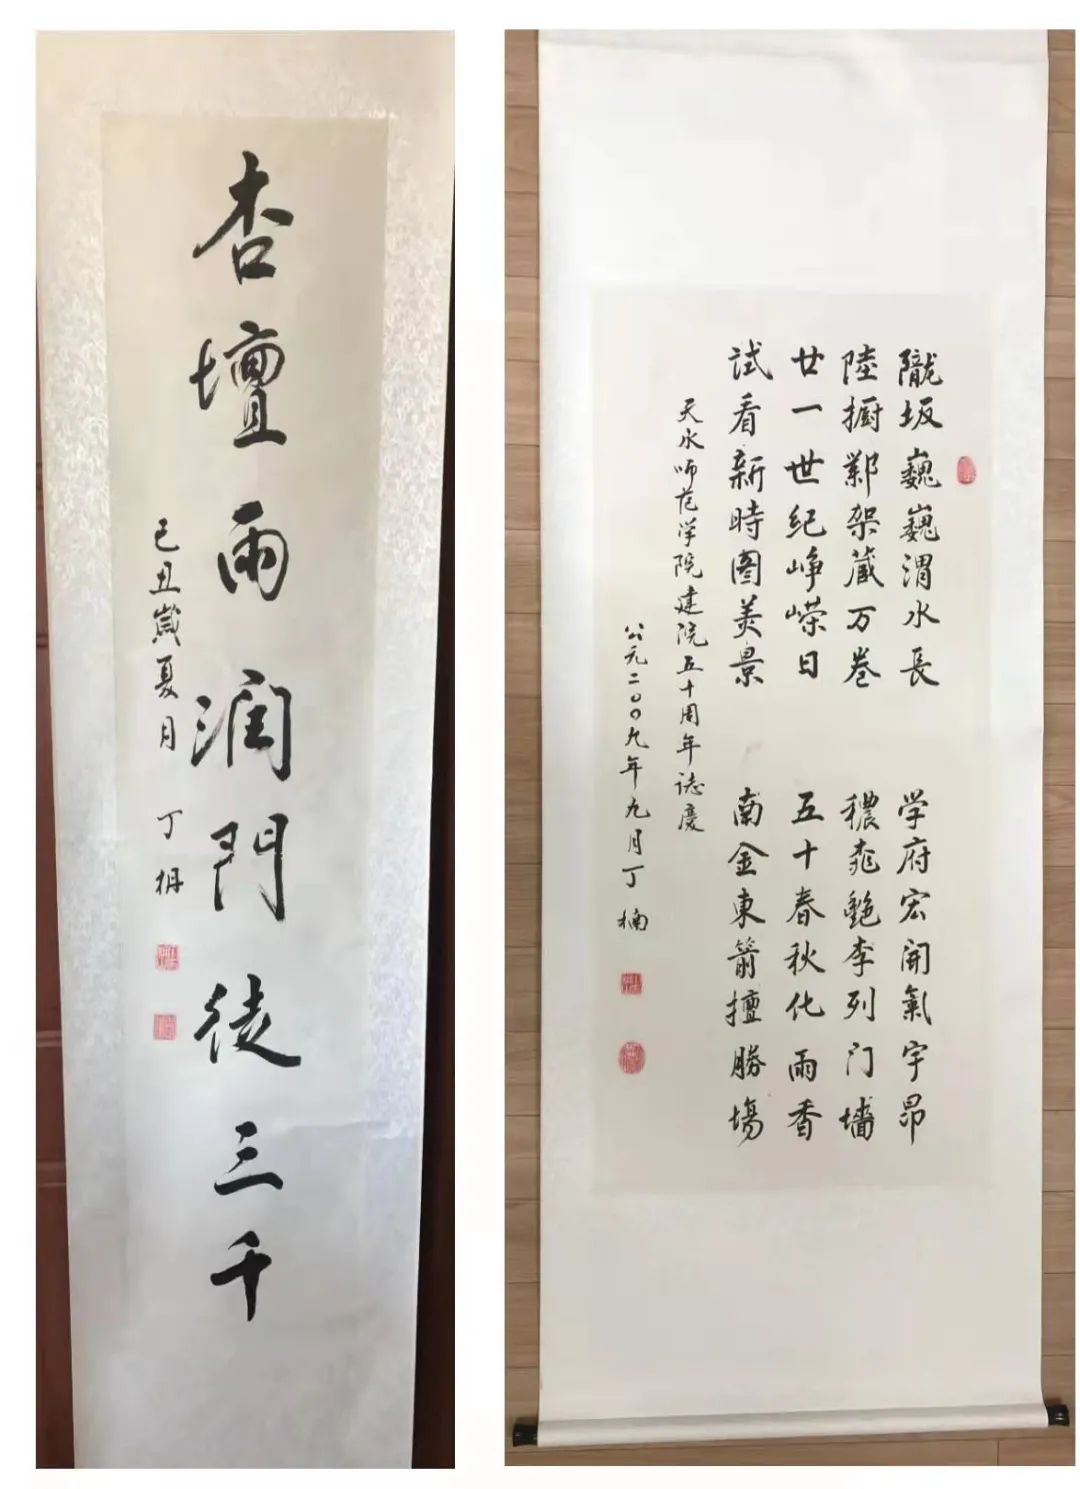 杏壇雨润門徒三千
己丑歲夏月 丁枏
隴坂巍巍渭水長 学府宏開氣宇昂
陸橱鄴架蔵万卷 穠桃艷李列门墙
廿一世纪峥嵘日 五十春秋化雨香
試看新時圖美景 南金東箭擅勝場
天水师范学院建院五十周年誌慶
公元二〇〇九年九月丁楠